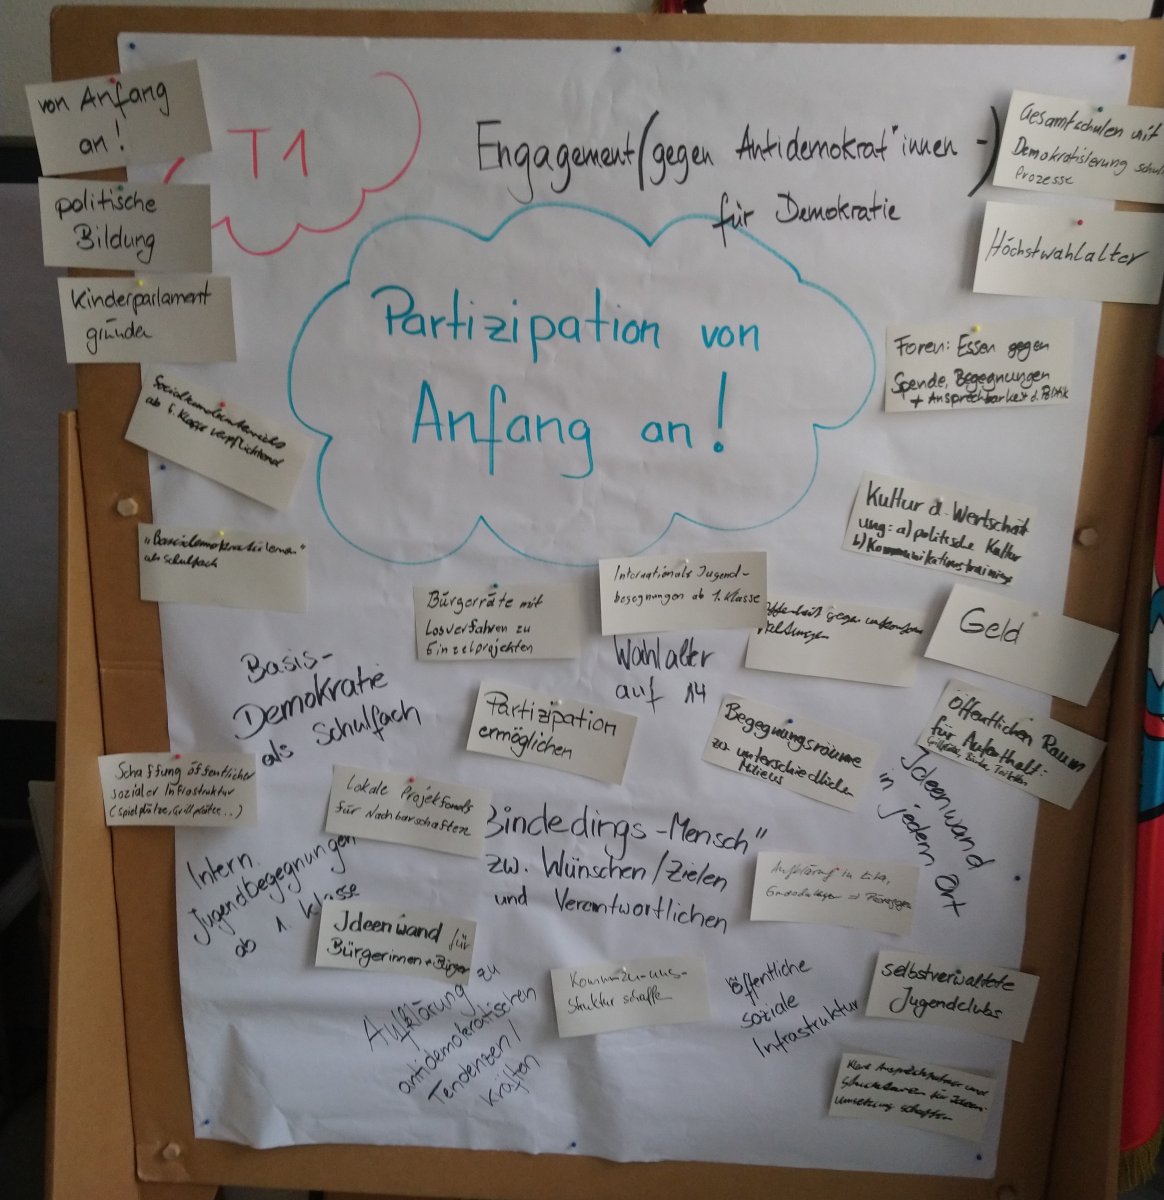 von Anfang
an!
T1
Engagement (gegen Antidemokrat*innen -)
für Demokratie
Gesamtschulen mit
Demokratisierung schul
Prozesse
politische
Bildung
Höchstwahlalter
Kinderparlament
gründen
Partizipation von
Anfang an!
Foren: Essen gegen
Spende, Begegnungen
+ Ansprechbarkeit d. Politik
ab 1. Klasse verpflichtend
Kultur d. Wertschät
ung: a) politische Kultur
b) Kommunikationstraining
"Basisdemokratie lernen"
als Schulfach
Bürgerräte mit
Losverfahren zu
Einzelprojekten
Internationale Jugend-
begegnungen ab 1. Klasse
gegen
Geld
Basis-
Demokratie
als Schulfach
Wahlalter
auf 14
Partizipation
ermöglichen
Begegnungsräume
zw. unterschiedlichen
Milieus
Öffentlichen Raum
für Aufenthalt:
Schaffung öffentlicher
sozialer Infrastruktur
(Spielplätze, Grillplätze...)
Lokale Projektfonds
für Nachbarschaften
Bindedings-Mensch"
zw. Wünschen/Zielen
und Verantwortlichen
Ideenwand
in jedem Ort
Intern.
Jugendbegegnungen
ab 1. Klasse
Aufklärung in Kita,
Ideenwand für
Bürgerinnen + Bürger
Kommunikations-
struktur schaffen
Öffentliche
soziale
Infrastruktur
selbstverwaltete
Jugendclubs
Aufklärung zu
antidemokratischen
Tendenzen/
Kräften
Klare Ansprechpartner und
Strukturen für Ideen-
umsetzung schaffen